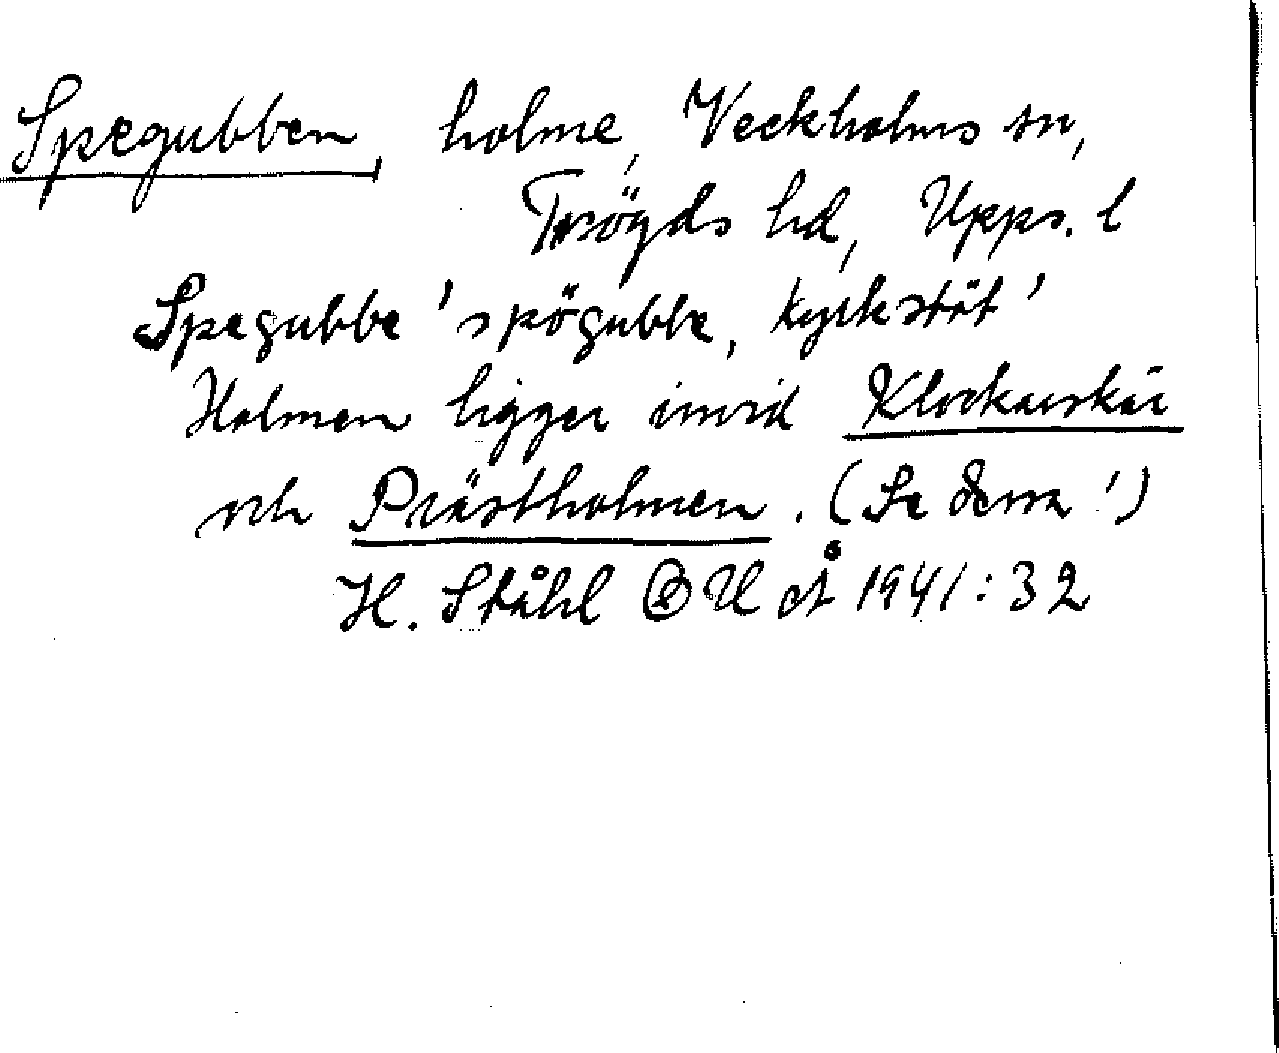 Spegubben, holme, Veckholms sn,
Trögds hd, Upps. l
Spegubbe 'spögubbe, kyrkstöt'
Holmen ligger invid Klockarskär
och Prästholmen. (Se dessa!)
H. Ståhl OU Å 1941:32